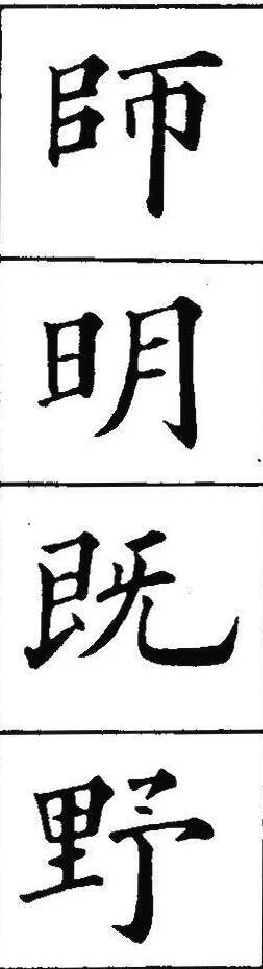 師
明
既
野